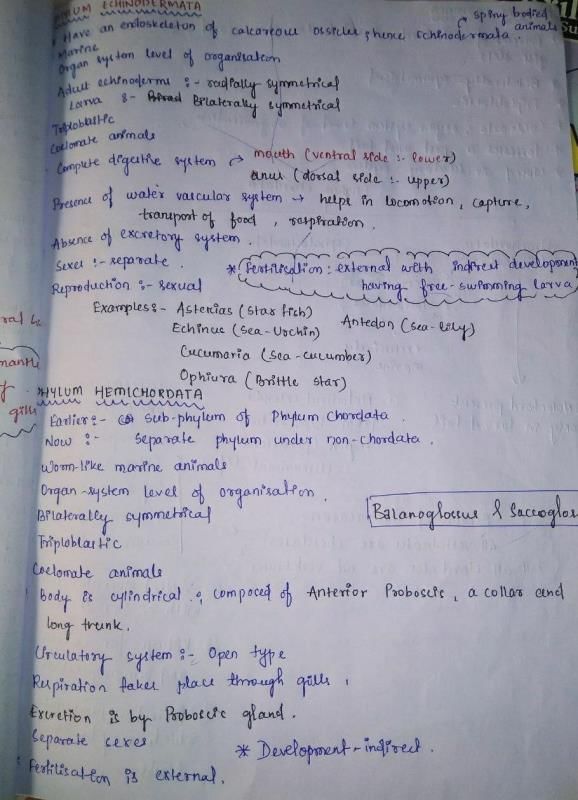 PHYLUM ECHINODERMATA
spiny bodied animals
Have an endoskeleton of calcareous ossicles, hence Echinodermata.
Marine
Organ system level of organisation
Adult echinoderms :- radially symmetrical
Larva :- Bilaterally symmetrical
Triploblastic
Coelomate animals
Complete digestive system → mouth (ventral side :- lower)
anus (dorsal side :- upper)
Presence of water vascular system → helps in locomotion, capture,
transport of food, respiration.
Absence of excretory system.
Sexes :- separate.
* Fertilisation : external with indirect development
having free-swimming larva
Reproduction :- sexual
Examples :- Asterias (Star fish)
Echinus (Sea-Urchin) Antedon (Sea-lily)
Cucumaria (Sea-cucumber)
Ophiura (Brittle star)
gills
PHYLUM HEMICHORDATA
Earlier :- sub-phylum of Phylum Chordata.
Now :- Separate phylum under non-chordata.
Worm-like marine animals
Organ-system level of organisation.
Bilaterally symmetrical
Balanoglossus & Saccoglos
Triploblastic
Coelomate animals
Body is cylindrical :, composed of Anterior Proboscis, a collar and
long trunk.
Circulatory system :- Open type
Respiration takes place through gills,
Excretion is by Proboscis gland.
Separate sexes
* Development - indirect.
Fertilisation is external.